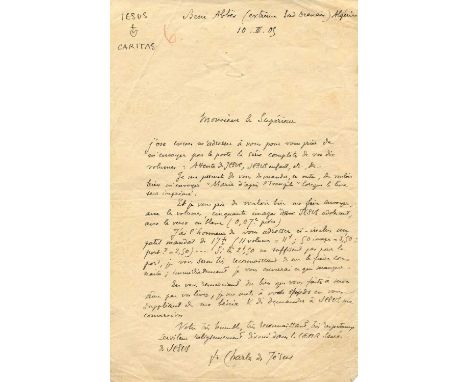 JESUS
CARITAS
6
Beni Abbès (extrême Sud Oranais) Algérie
10. II. 05
Monsieur le Supérieur
J'ose encore m'adresser à vous pour vous prier de
m'envoyer par la poste la série complète de vos dix
volumes : Attente de JESUS, JESUS enfant, etc. de.
Je me permets de vous demander, en outre, de vouloir
bien m'envoyer "Marie d'après l'Evangile" lorsque le livre
sera imprimé.
Et je vous prie de vouloir bien me faire envoyer,
avec les volumes, cinquante images JESUS adolescent,
avec le verso en blanc (0,07 pièce)
J'ai l'honneur de vous adresser ci-inclus un
petit mandat de 17 (11 volumes = 11 ; 50 images = 3,50
port ? = 2,50) Si les 2,50 ne suffisent pas pour le
port, je vous serai très reconnaissant de me le faire con-
naître ; immédiatement je vous enverrai ce qui manque.
En vous remerciant du bien que vous faites à mon
âme par vos livres, je me mets à vos pieds en vous
suppliant de me bénir et de demander à JESUS ma
conversion
Votre très humble, très reconnaissant, très respectueux
serviteur religieusement dévoué dans le CŒUR sacré
de JESUS
fr. Charles de Jésus